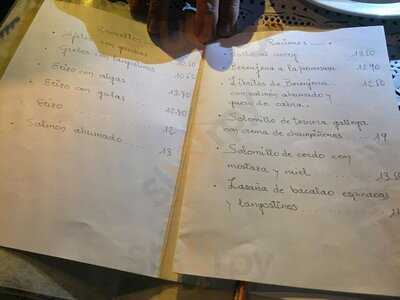 con gambas
Grelos con langostinos
Erizo con algas
Erizo con gulas
Erizo 12
Salmón ahumado 13
Raciones
al curry 13.50
Berenjena a la parmesana 12.90
Libritos de Berenjena 12.80
con salmón ahumado y
queso de cabra
Solomillo de ternera gallega
con crema de champiñones 19
Solomillo de cerdo con
mostaza y miel 13.80
Lasaña de bacalao espinacas
y langostinos